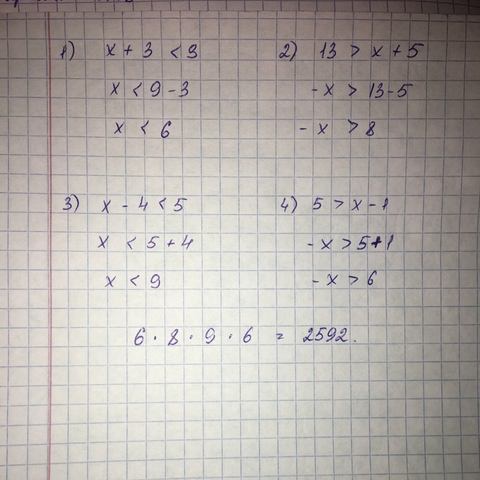 1) x + 3 < 9
x < 9 - 3
x < 6
2) 13 > x + 5
- x > 13 - 5
- x > 8
3) x - 4 < 5
x < 5 + 4
x < 9
4) 5 > x - 1
- x > 5 + 1
- x > 6
6 · 8 · 9 · 6 = 2592.